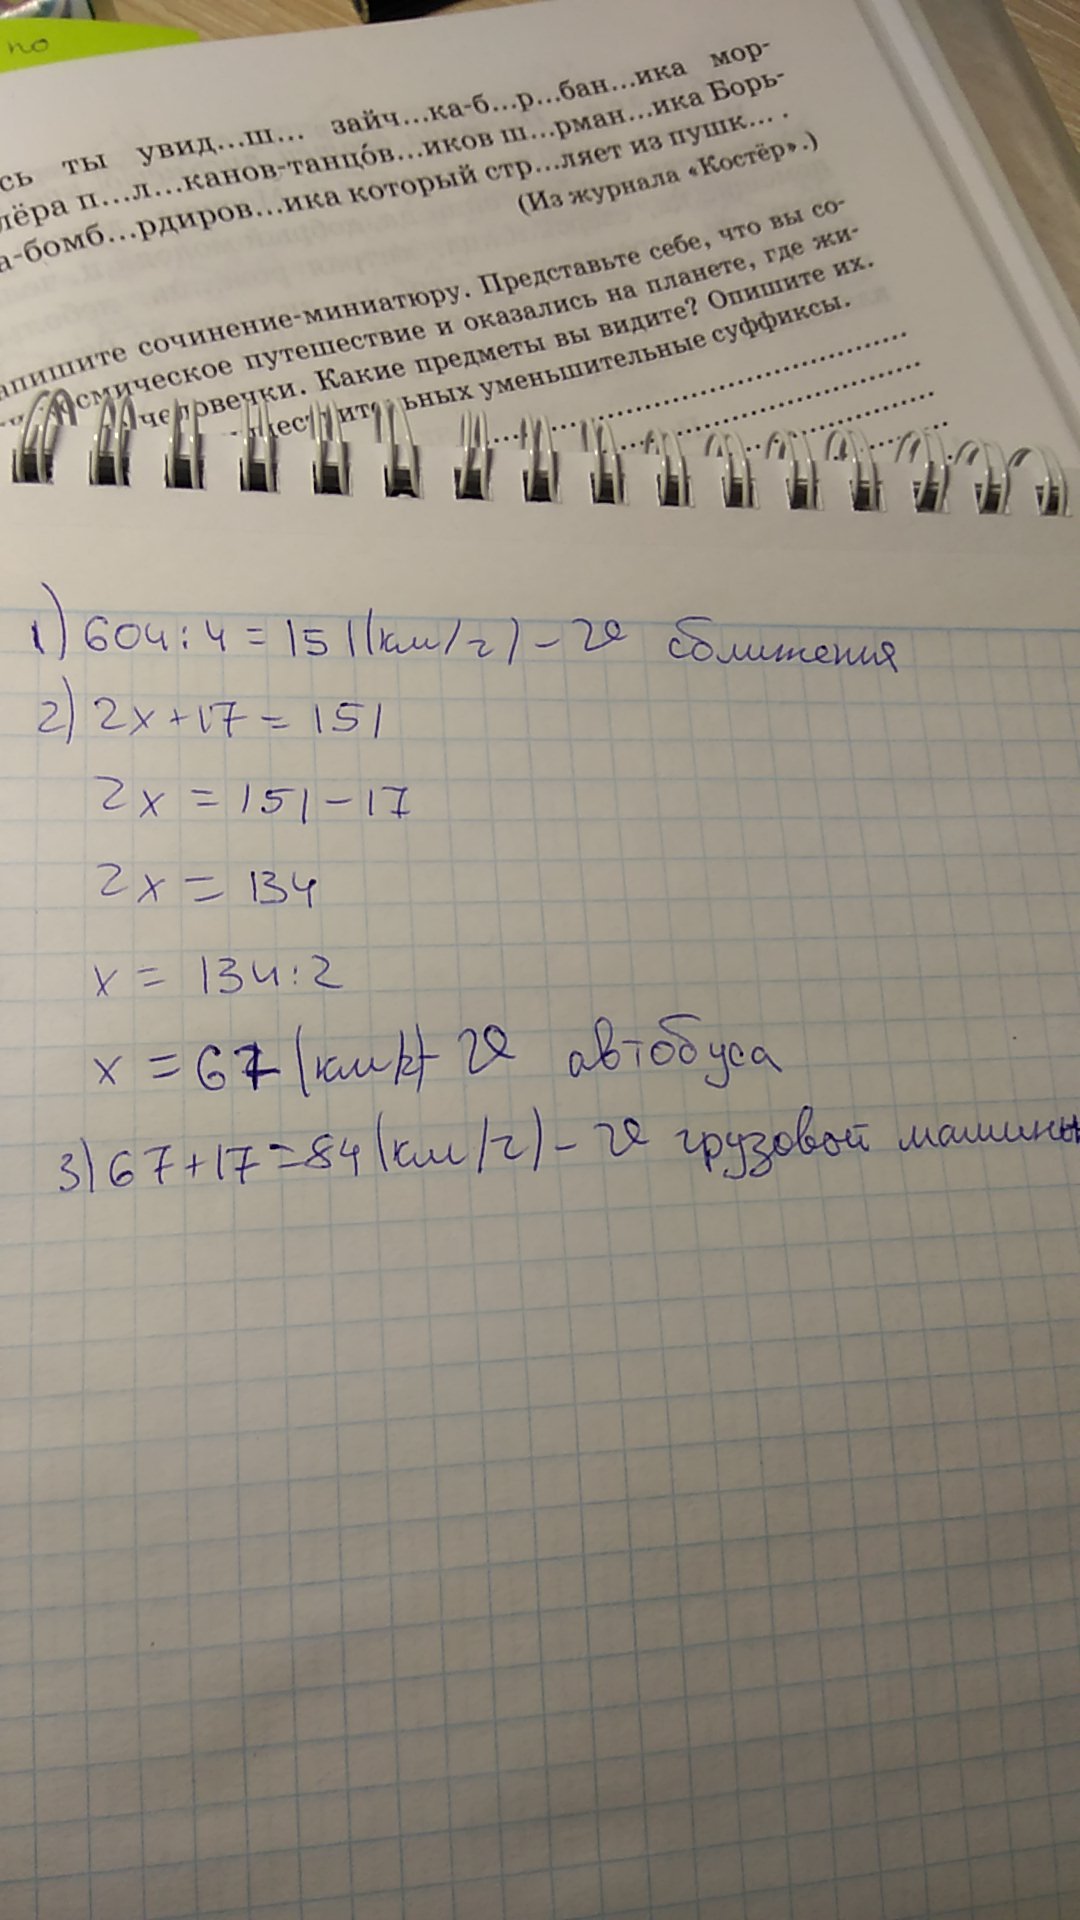 по
сь ты увид...ш... зайч...ка-б...р...бан...ика мор-
лёра п...л...канов-танцо́в...иков ш...рман...ика Борь-
а-бомб...рдиров...ика который стр...ляет из пушк... .
(Из журнала «Костёр».)
апишите сочинение-миниатюру. Представьте себе, что вы со-
осмическое путешествие и оказались на планете, где жи-
человечки. Какие предметы вы видите? Опишите их.
уменьшительные суффиксы.
1) 604:4=151(км/ч) – v сближения
2) 2x+17=151
2x=151–17
2x=134
x=134:2
x=67(км/ч)– v автобуса
3) 67+17=84(км/ч) – v грузовой машины